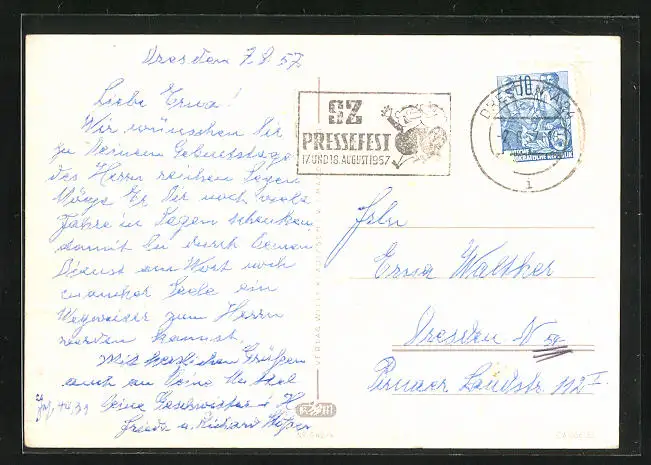 Dresden 7.8.57
Liebe Erna!
Wir wünschen Dir
zu Deinem Geburtstage
des Herrn reichen Segen
Möge Er Dir noch viele
Jahre in Segen schenken
damit Du durch Deinen
Dienst am Wort noch
mancher Seele ein
Wegweiser zum Herrn
werden kannst.
Mit herzlichen Grüßen
auch an Deine
Deine Geschwister i. H.
Frieda u. Richard
SZ
PRESSEFEST
17. UND 18. AUGUST 1957
DRESDEN
10
DEUTSCHE DEMOKRATISCHE REPUBLIK
Frln
Erna Walther
Dresden N 54
Pirnaer Landstr. 112 I